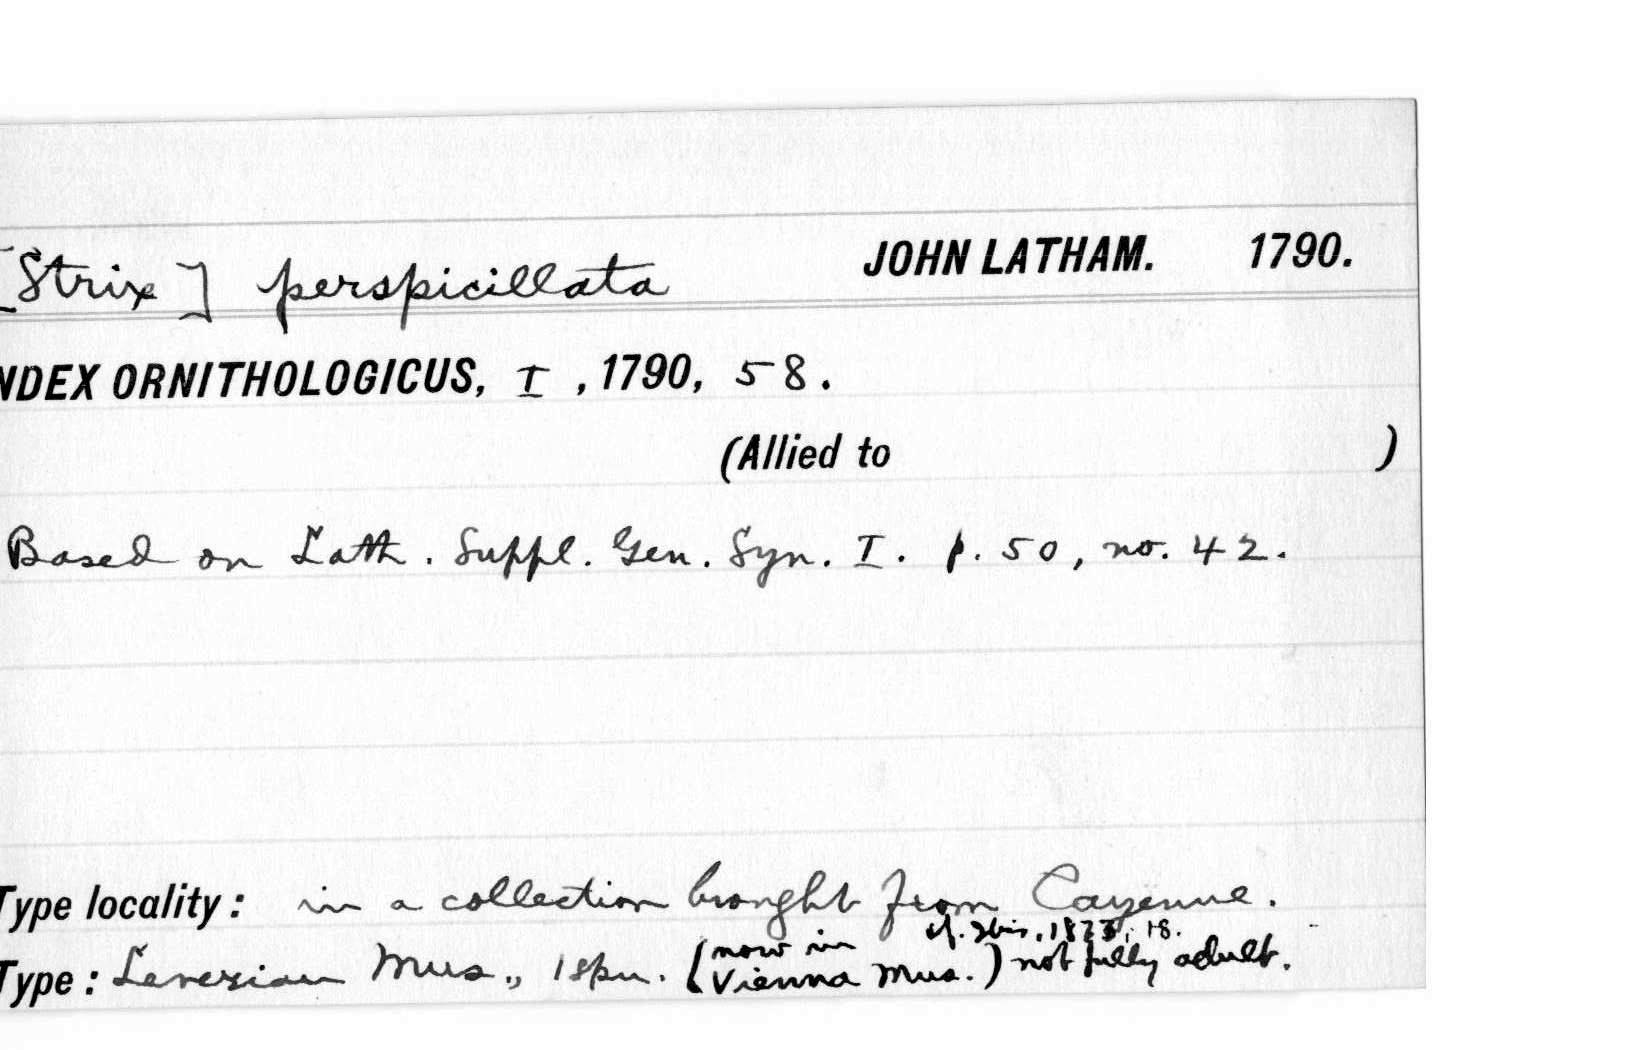 [Strix] perspicillata JOHN LATHAM. 1790.
NDEX ORNITHOLOGICUS, I, 1790, 58.
(Allied to )
Based on Lath. Suppl. Gen. Syn. I. p. 50, no. 42.
Type locality: in a collection brought from Cayenne.
cf. Ibis, 1873, 18.
Type: Leverian Mus., 1 spn. (now in Vienna Mus.) not fully adult.